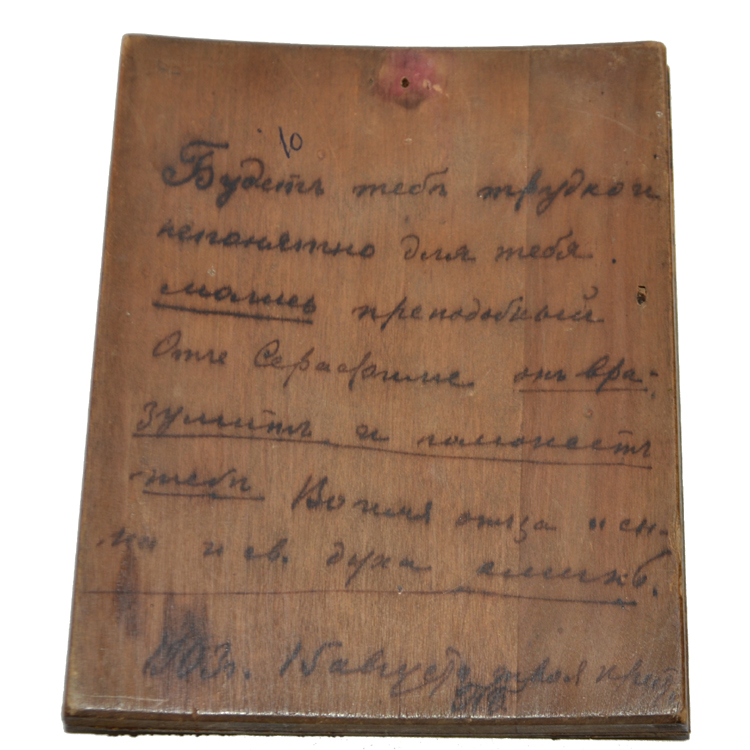 10
Будетъ тебѣ трудно и
непонятно для тебя.
молись преподобный
Отче Серафиме онъ вра-
зумитъ и поможетъ
тебѣ Во имя отца и сы-
на и св. духа аминь.
1903 г. 15 августа твоя